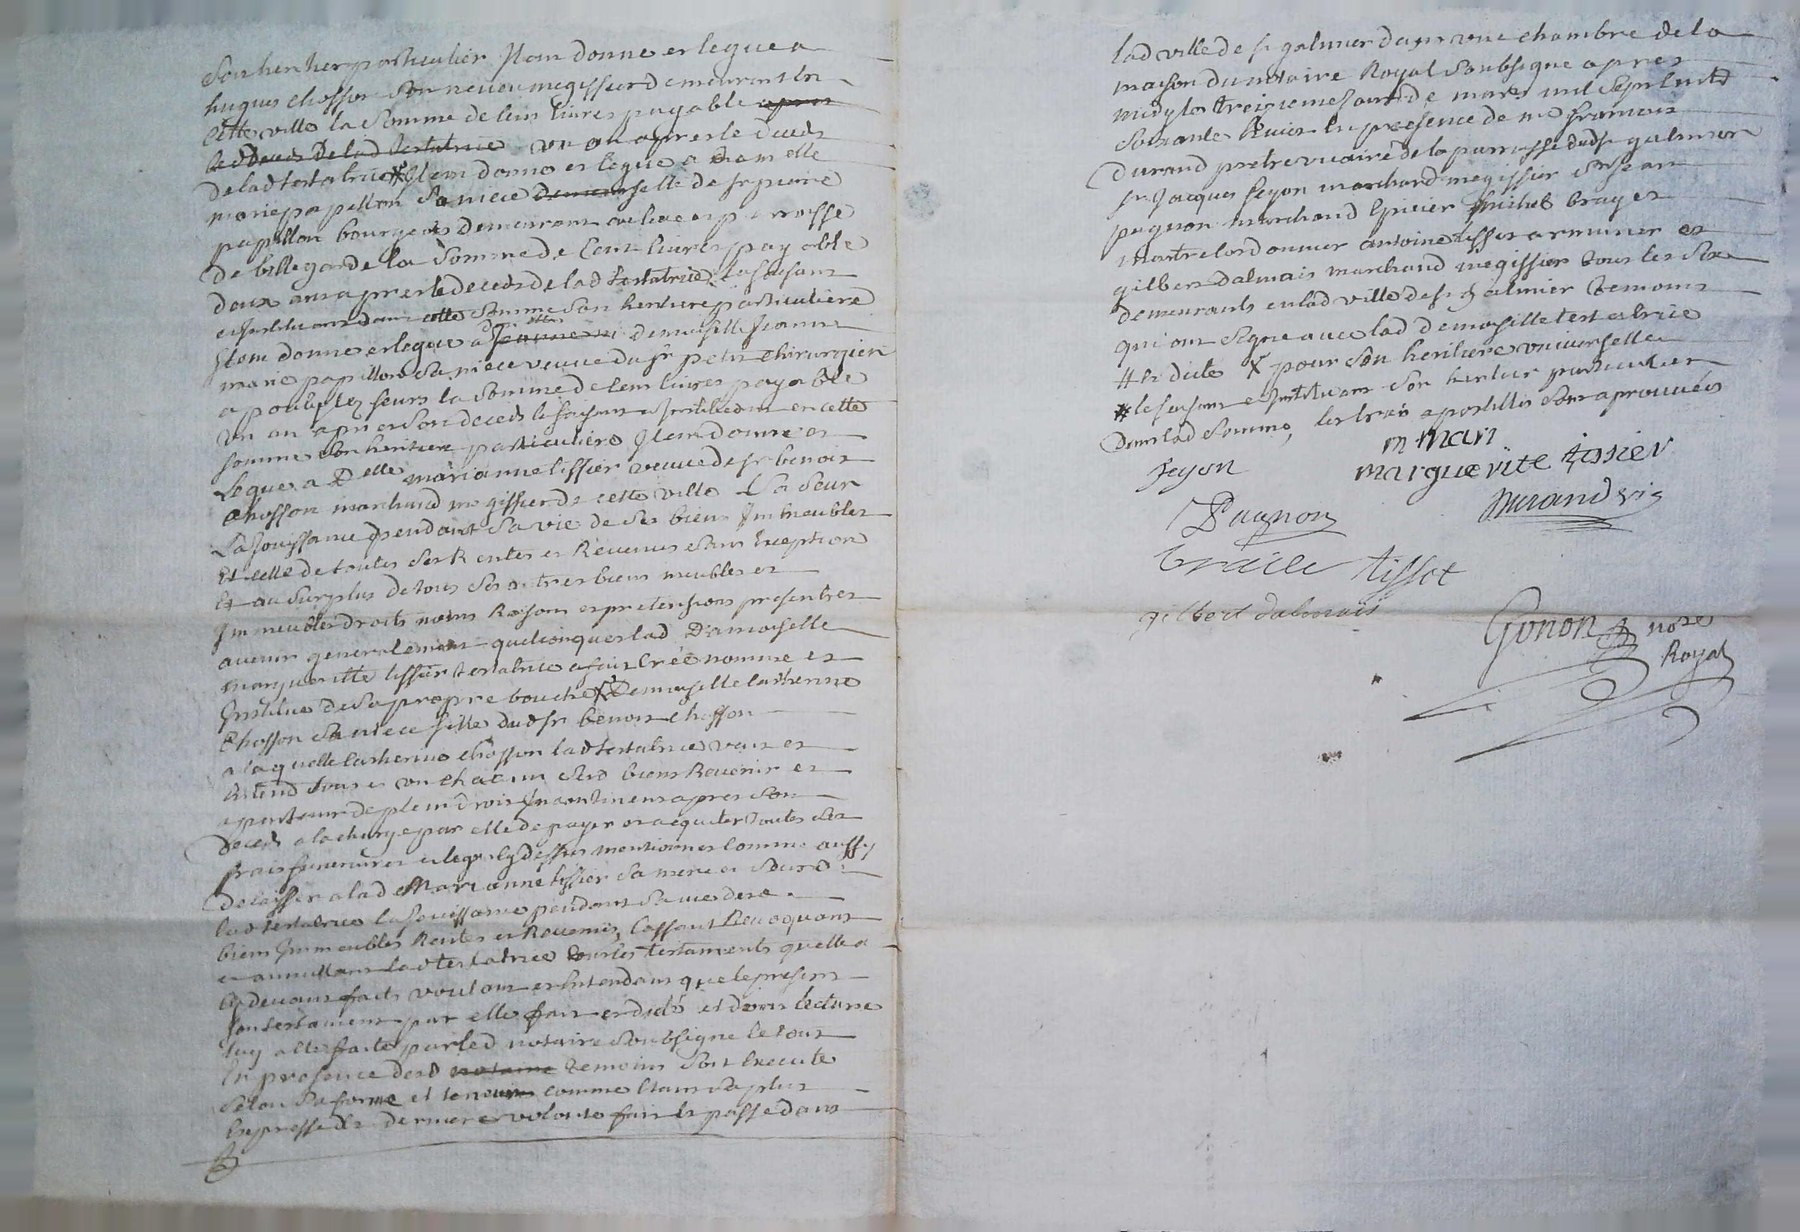 Son heritier particulier Item donne et legue a
hugues chosson Son neveu megissier demeurant en
cette ville la Somme de cent livres payable apres
le deces de lad testatrice un an apres le deces
de lad testatrice * Item donne et legue a dam elle
marie papillon Sa niece demoiselle de sr pierre
papillon bourgeois demeurant au lieu et parroisse
de bellegarde la Somme de cent livres payable
deux ans apres le deces de lad testatrice la faisant
et instituant dans cette Somme Son heritiere particuliere
Item donne et legue a demoiselle Jeanne
marie papillon Sa niece veuve du sr petit chirurgien
a la Somme de cent livres payable
un an apres Son deces la faisant et instituant en cette
Somme Son heritiere particuliere Item donne et
legue a Delle marianne tissier veuve de sr benoit
chosson marchand megissier de cette ville Sa Seur
La Jouissance pendant Sa vie de Ses biens Immeubles
et celle de toutes Ses Rentes et Revenus Sans Exception
Et au Surplus de tous Ses autres biens meubles et
Immeubles droits noms Raisons et pretensions presentes et
avenir generalement quelconques lad Damoiselle
margueritte tissier testatrice a fait créé nommé et
Institue de Sa propre bouche X Demoiselle catherine
Chosson Sa niece fille dud sr benoit chosson
a laquelle catherine chosson lad testatrice veut et
Entend tous et un chacun Sesd biens Revenir et
apartenir de plein droit Incontinent apres Son
deces a la charge par elle de payer et acquiter toutes Ses
frais funeraires et legs cy dessus mentionnes comme aussy
de laisser a lad Marianne tissier Sa mere et Seur d
lad testatrice la Jouissance pendant Sa vie desd
biens Immeubles Rentes et Revenus, Cassant Revoquant
et annullant lad testatrice tous les testaments quelle a
cy devant faits voulant et Entendant que le present
Son testament par elle fait et dicté et dont lecture
luy a Eté faite par led notaire Soubsigne le tout
En presence desd notaire temoins Soit Execute
Selon Sa forme et teneur comme Etant Sa plus
Expresse et derniere volonte fait et passe dans
lad ville de st galmier dans une chambre de la
maison du notaire Royal Soubsigne apres
midy le treizieme Jour de mars mil Sept cents
Soixante En presence de me francois
Durand pretre vicaire de la parroisse dud st galmier
sr Jacques feyon marchand megissier sr Jean
pagnon marchand Epicier michel brayes
maitre cordonnier antoine tissot armurier et
gilbert dalmais marchand megissier tous les Six
demeurants en lad ville de st galmier temoins
qui ont Signe avec lad demoiselle testatrice
# Et dicte X pour Son heritiere universelle
* le faisant et Instituant Son heritier particulier
Dans lad Somme, les trois apostilles Sont aprouvées
m man
feyon marguerite tissier
Pagnon Durand vic
tissot
gilbert dalmais
Gonon nore
Royal